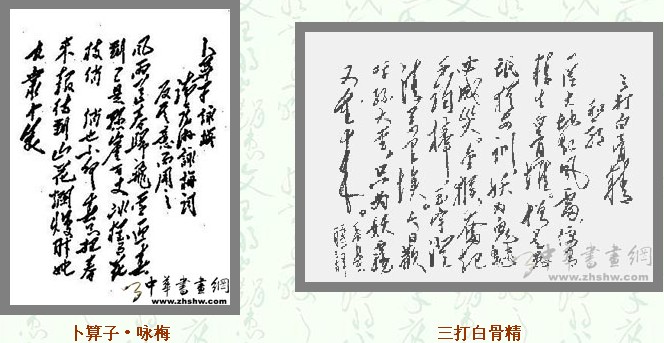 卜算子 咏梅
读陆游咏梅词
反其意而用之
风雨送春归飞雪迎春
到已是悬崖百丈冰犹有花
枝俏 俏也不争春只把春
来报待到山花烂漫时她
在丛中笑
中華書畫網
www.zhshw.com
卜算子·咏梅
三打白骨精
一从大地起风雷便有
精生白骨堆僧是愚
氓犹可训妖为鬼蜮
必成灾金猴奋起
千钧棒玉宇澄
清万里埃今日欢
呼孙大圣只为妖雾
又重来
中華書畫網
www.zhshw.com
三打白骨精